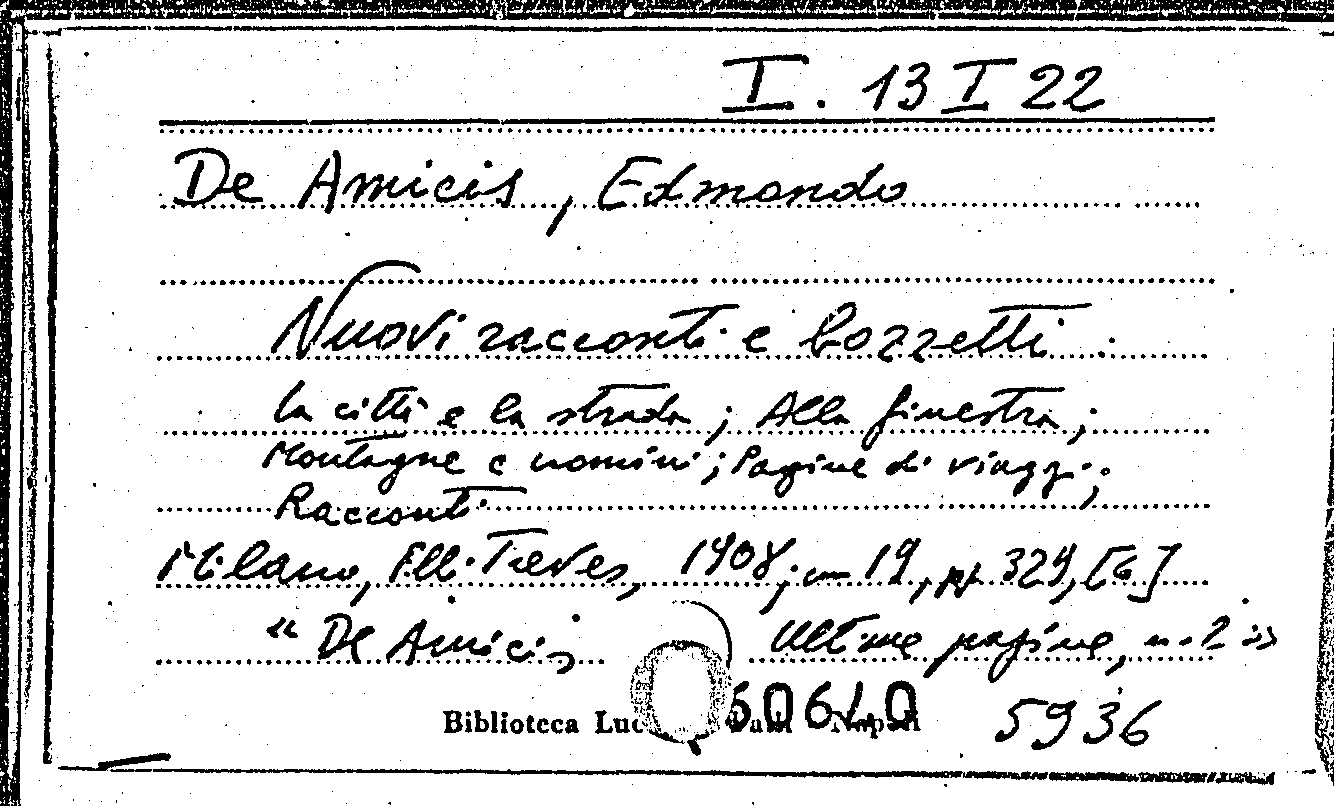 I. 13 I 22
De Amicis, Edmondo
Nuovi racconti e bozzetti
La città e la strada; Alla finestra;
Montagne e uomini; Pagine di viaggi;
Racconti
Milano, F.lli Treves, 1908; cm 19, pp 329, [6]
“ De Amicis Ultime pagine, n. 2 »
Biblioteca Luc
5936